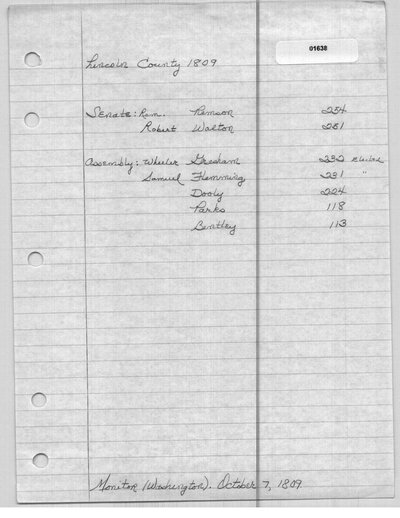 01638
Lincoln County 1809
Senate: Ram. Remson 254
Robert Walton 251
Assembly: Wheeler Gresham 232 Elected
Samuel Flemming 231 "
Dooly 224
Parks 118
Bentley 113
Monitor (Washington). October 7, 1809.